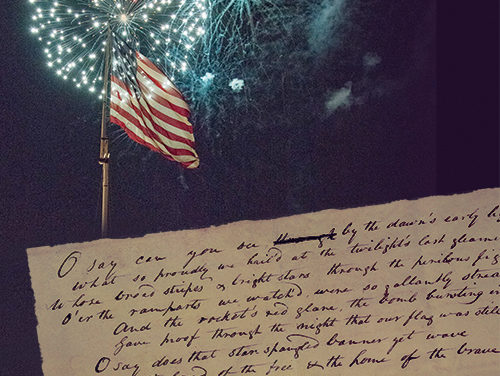 O say can you see through by the dawn's early li
What so proudly we hail'd at the twilight's last gleamin
Whose broad stripes & bright stars through the perilous fig
O'er the ramparts we watch'd, were so gallantly stream
And the rocket's red glare, the bomb bursting in
Gave proof through the night that our flag was still
O say does that star spangled banner yet wave
land of the free & the home of the brave